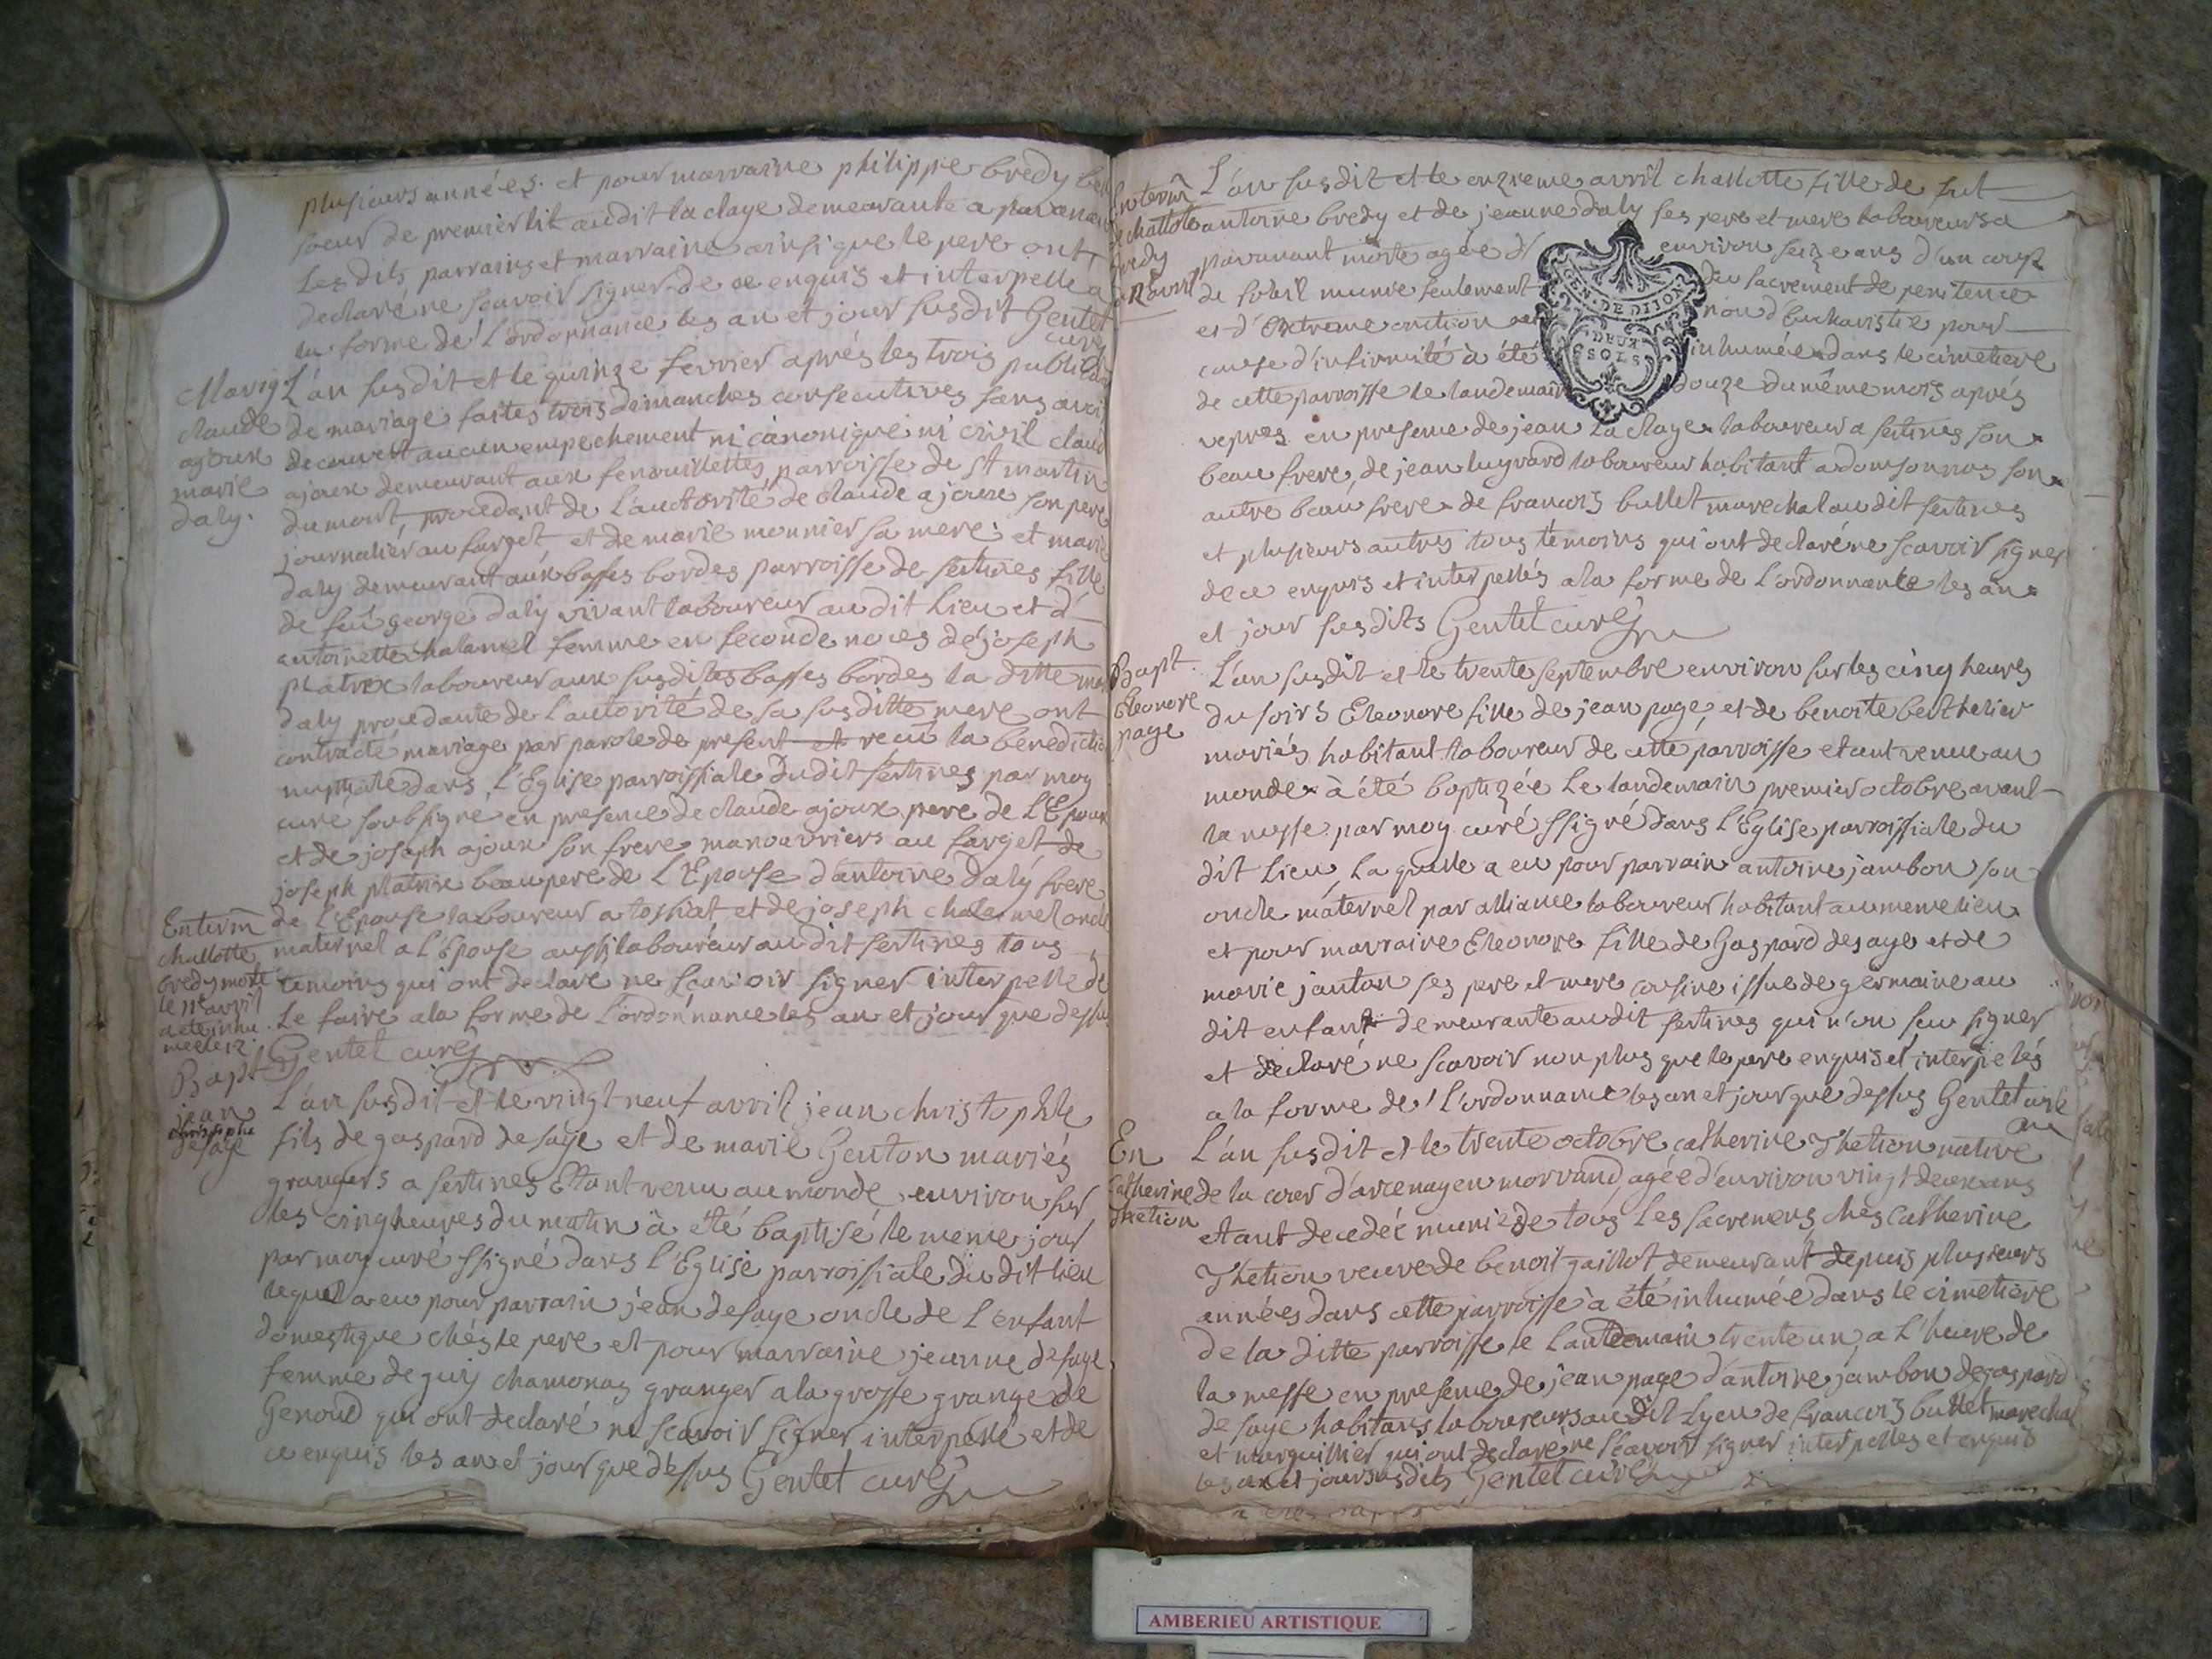 plusieurs années. et pour marraine philippe bredy
soeur de premier lit audit la claye demeurante a
Les dits parrains et marraine ainsi que le pere ont
declaré ne scavoir signer de ce enquis et interpellé a
la forme de l'ordonnance les an et jour susdit Gentet
curé
Mariag L'an susdit et le quinze fevrier aprés les trois
claude de mariage faites trois dimanches consecutives sans
ajoux decouvert aucun empechement ni canonique ni civil
marie ajoux demeurant aux fenouillettes parroisse de st martin
daly. dumont, procedant de l'auctorité de claude ajoux son pere
journalier au farget et de marie monnier sa mere; et marie
daly demeurant aux basses bordes parroisse de sertines fille
de feu george daly vivant laboureur au dit Lieu et d'
antoinette chalamel femme en seconde noces de joseph
platrix laboureur aux susdites basses bordes la ditte
daly procedante de l'autorité de sa susditte mere ont
contracté mariage par parole de present et recu la
nuptiale dans L'Eglise parroissiale dudit sertines par moy
curé soubsigné en presence de claude ajoux pere de L'Epoux
et de joseph ajoux son frere manouvriers au farget de
joseph platrix beaupere de L'Epouse d'antoine daly frere
Enterm de L'Epouse laboureur a tossiat et de joseph chalamel oncle
challotte maternel a L'Epouse aussi laboureur audit sertines tous
bredy morte temoins qui ont declaré ne scavoir signer interpellé de
le 11e avril
a été inhu Le faire a la forme de L'ordonnance les an et jour que dessus
mée le 12. Gentet curé
Bapt L'an susdit et le vingt neuf avril jean christophle
jean
christophe fils de gaspard desaye et de marie Genton mariés
desaye grangers a sertines Etant venu au monde environ sur
les cinq heures du matin à été baptisé le meme jour
par moy curé ssigné dans l'Eglise parroissiale du dit lieu
lequel a eu pour parrain jean desaye oncle de L'enfant
domestique chés le pere et pour marraine jeanne desaye
femme de guy chamonas granger a la grosse grange de
Genoud qui ont declaré ne scavoir signer interpellé et de
ce enquis les an et jour que dessus Gentet curé
Enterm L'an susdit et le onzieme avril challotte fille de fut
challotte antoine bredy et de jeanne daly ses pere et mere laboureurs a
bredy environ seize ans d'un coup
de soleil munie seulement du sacrement de penitence
et d'Extreme onction non d'Eucharistie pour
cause d'infirmité à été inhumée dans le cimetiere
de cette parroisse le landemain douze du même mois aprés
vepres en presence de jean La claye laboureur a sertines son
beau frere, de jean luyrard laboureur habitant a domsonnas son
autre beau frere de francois bullet marechal au dit sertines
et plusieurs autres tous temoins qui ont declaré ne scavoir signer
de ce enquis et interpellés a la forme de L'ordonnance les an
et jour susdits Gentet curé
EN. DE DIJON
DEUX
SOLS
Bapt. L'an susdit et le trente septembre environ sur les cinq heures
Eleonore du soirs Eleonore fille de jean page et de benoite berthelier
page mariés habitant laboureur de cette parroisse etant venue au
monde à été baptizée Le landemain premier octobre avant
la messe par moy curé ssigné dans L'Eglise parroissiale du
dit Lieu, La quelle a eu pour parrain antoine jambon son
oncle maternel par alliance laboureur habitant au meme lieu
et pour marraine Eleonore fille de Gaspard desaye et de
marie janton ses pere et mere cousine issue de germaine au
dit enfant demeurante audit sertines qui n'on seu signer
et declaré ne scavoir non plus que le pere enquis et interpelés
a la forme de L'ordonnance les an et jour que dessus Gentet curé
En L'an susdit et le trente octobre catherine Thetion native
Catherine de la cour d'arcenay en morvand, agée d'environ vingt deux ans
thetion etant decedée munie de tous Les sacremens chés catherine
Thetion veuve de benoit gaillot demeurant depuis plusieurs
années dans cette parroisse à été inhumée dans le cimetiere
de la ditte parroisse le lantdemain trente un, a L'heure de
la messe en presence de jean page d'antoine jambon de gaspard
de saye habitans laboureurs au dit Lyeu de francois bullet marechal
et marguillier qui ont declaré ne scavoir signer interpellés et enquis
les an et jour susdits Gentet curé
AMBERIEU ARTISTIQUE